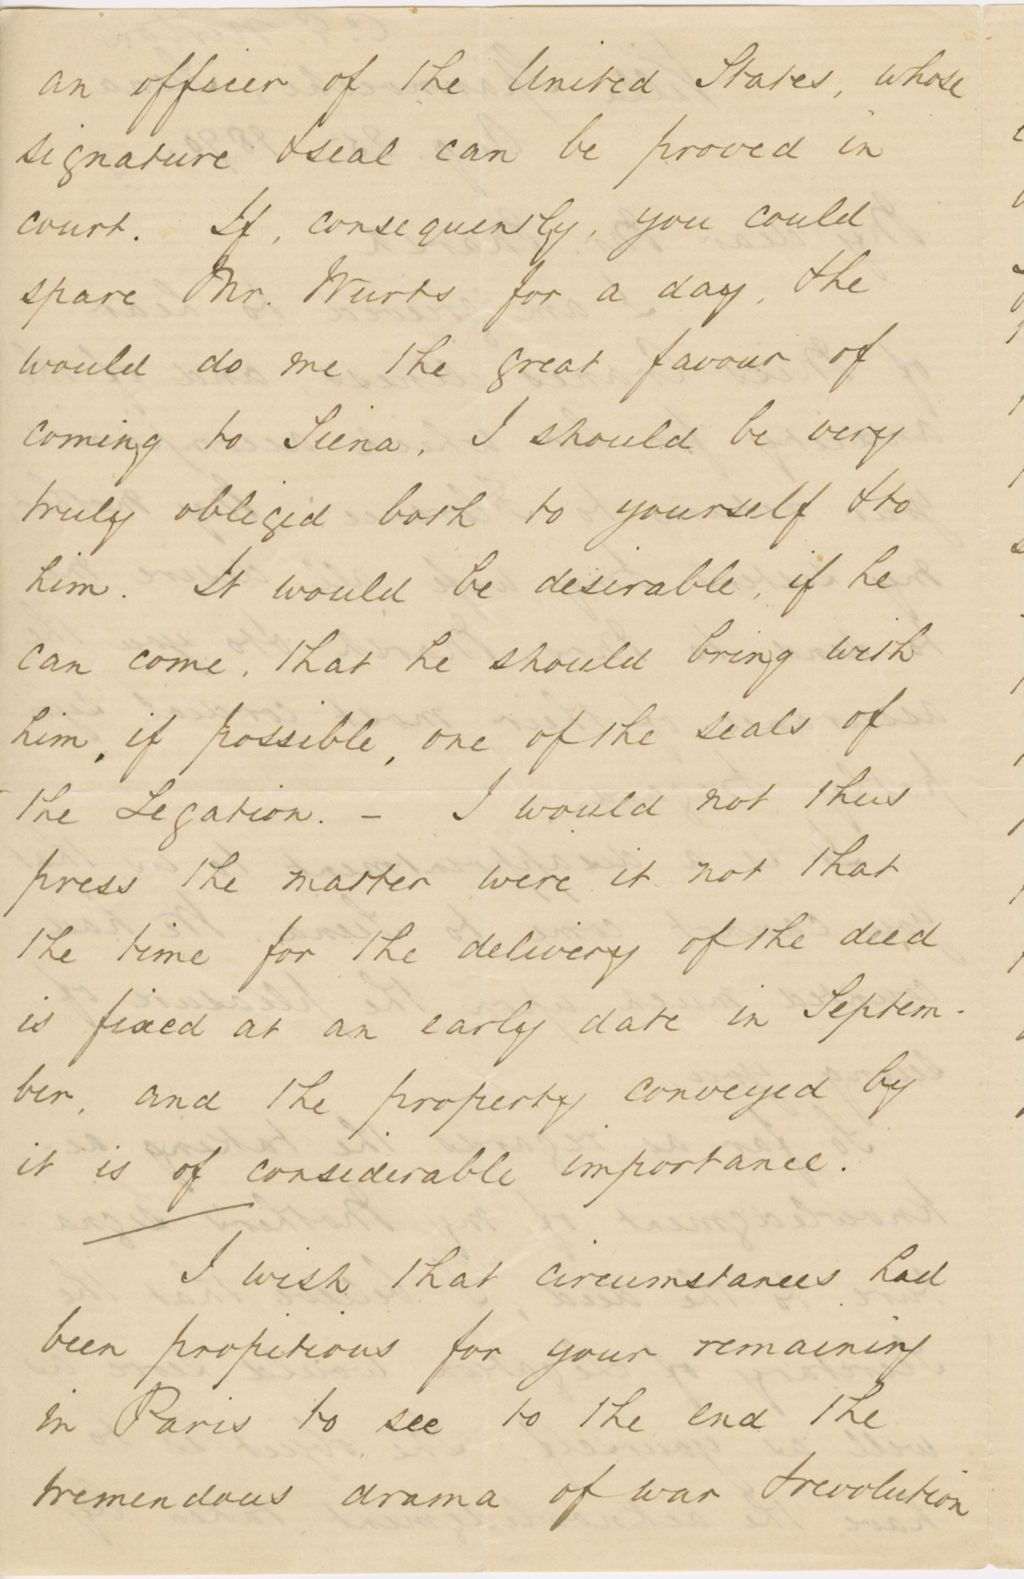 an officer of the United States, whose
signature & seal can be proved in
court. If, consequently, you could
spare Mr. Wurts for a day, & he
would do me the great favour of
coming to Siena, I should be very
truly obliged both to yourself & to
him. It would be desirable, if he
can come, that he should bring with
him, if possible, one of the seals of
the Legation. – I would not thus
press the matter were it not that
the time for the delivery of the deed
is fixed at an early date in Septem-
ber, and the property conveyed by
it is of considerable importance.
I wish that circumstances had
been propitious for your remaining
in Paris to see to the end the
tremendous drama of war & revolution